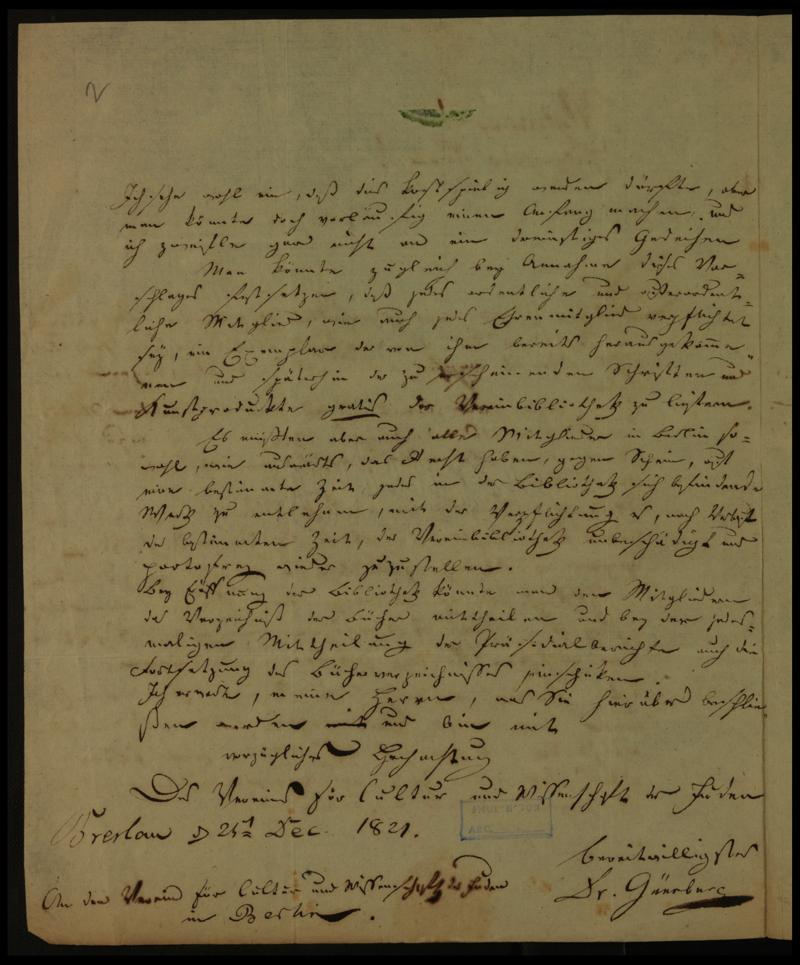 2
Ich sehe wohl ein, daß dies kostspielig werden dürfte, aber
man könnte doch vorläufig einen Anfang machen, und
ich zweifle gar nicht an ein Gedeihen
Man könnte zugleich bey Annahme dieses Vor=
schlages festsetzen, daß jedes ordentliche und außerordent=
liche Mitglied, wie auch jedes Ehrenmitglied verpflichtet
sey, ein Exemplar der von ihm bereits herausgekomme=
nen und späterhin der zu erscheinenden Schriften und
Kunstprodukte gratis der Vereinbibliothek zu liefern.
Es müßten aber auch alle Mitglieder in Berlin so=
wohl, wie auswärts, das Recht haben, gegen Schein, auf
eine bestimmte Zeit jedes in der Bibliothek sich befindende
Werk zu entlehnen, mit der Verpflichtung es, nach Verlauf
der bestimmten Zeit, der Vereinbibliothek unbeschädigt und
portofrey wieder zuzustellen.
Bey Eröffnung der Bibliothek könnte man den Mitgliedern
das Verzeichniß der Bücher mittheilen und bey der jedes=
maligen Mittheilung der Präsidialberichte auch die
Fortsetzung des Bücherverzeichnisses einschicken.
Ich erwarte, meine Herrn, was Sie hierüber beschlie=
ßen werden und bin mit
vorzüglicher Hochachtung
Des Vereins für Cultur und Wissenschaft der Juden
Breslau d 25t Dec. 1821.
bereitwilligster
Dr. Günsburg
An den Verein für Cultur und Wissenschaft der Juden
in Berlin.